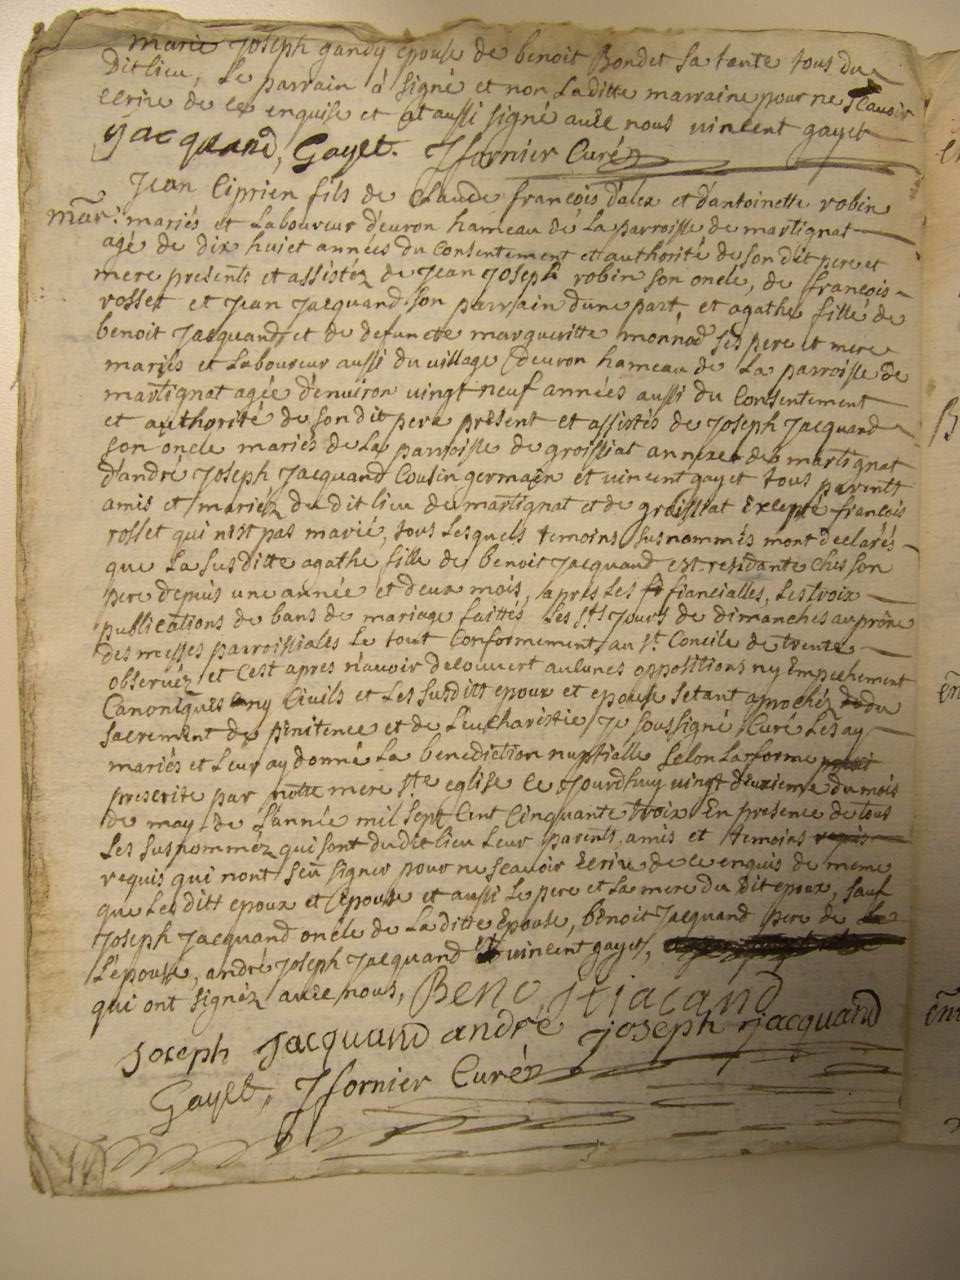 marie Joseph gandy epouse de benoit Bondet sa tante tous du
dit lieu, Le parrain à signé et non Laditte marraine pour ne scavoir
ecrire de ce enquise et at aussi signé avec nous vincent gayet
Jacquand, Gayet. J fornier Curé
Jean Ciprien fils de Claude françois dalex et d'antoinette robin
mar: mariés et Laboureur d'evron hameau de La parroisse de martignat
agé de dix huict années du Consentement et authorité de son dit pere et
mere presents et assistéz de Jean Joseph robin son oncle, de françois
rosset et Jean Jacquand son parrain dune part, et agathe fille de
benoit Jacquand et de defuncte margueritte monnod ses pere et mere
mariés et Laboureur aussi du village d'evron hameau de La parroisse de
martignat agée d'environ vingt neuf années aussi du Consentement
et authorité de son dit pere présent et assistés de Joseph Jacquand
son oncle mariés de La parroisse de groissiat annexe de martignat
d'andré Joseph Jacquand Cousin germain et vincent gayet tous parents
amis et mariez du dit lieu de martignat et de groissiat Excepté françois
rosset qui n'est pas marié, tous Lesquels temoins susnommés mont declarés
que La susditte agathe fille de benoit Jacquand est residante ches son
pere depuis une année et deux mois, apres Les fiancialles, Les troix
publications de bans de mariage faittes Les sts Jours de dimanches au prône
des messes parroissiales Le tout Conformement au st Concile de trente
observéz et c'est apres n'avoir decouvert aucunes oppositions ny Empechement
Canoniques ny Civils et Les susditt epoux et epouse setant aprochéz du
sacrement de penitence et de Leucharistie, Je soussigné Curé Les ay
mariés et Leur ay donné La benediction nuptialle selon La forme
prescrite par notre mere ste eglise ce Jourdhuy vingt deuxieme du mois
de may de L'année mil sept Cent Cinquante troix En presence de tous
Les susnommez qui sont du dit lieu Leur parents, amis et temoins
requis qui nont sçeu signer pour ne scavoir Ecrire de ce enquis de meme
que Les ditt epoux et Epouse et aussi Le pere et La mere du dit epoux, sauf
Joseph Jacquand oncle de La ditte Epouse, benoit Jacquand pere de
L'epouse, andré Joseph Jacquand et vincent gayet,
qui ont signéz avec nous, Beno
Joseph Jacquand andré joseph jacquand
Gayet, J fornier Curé